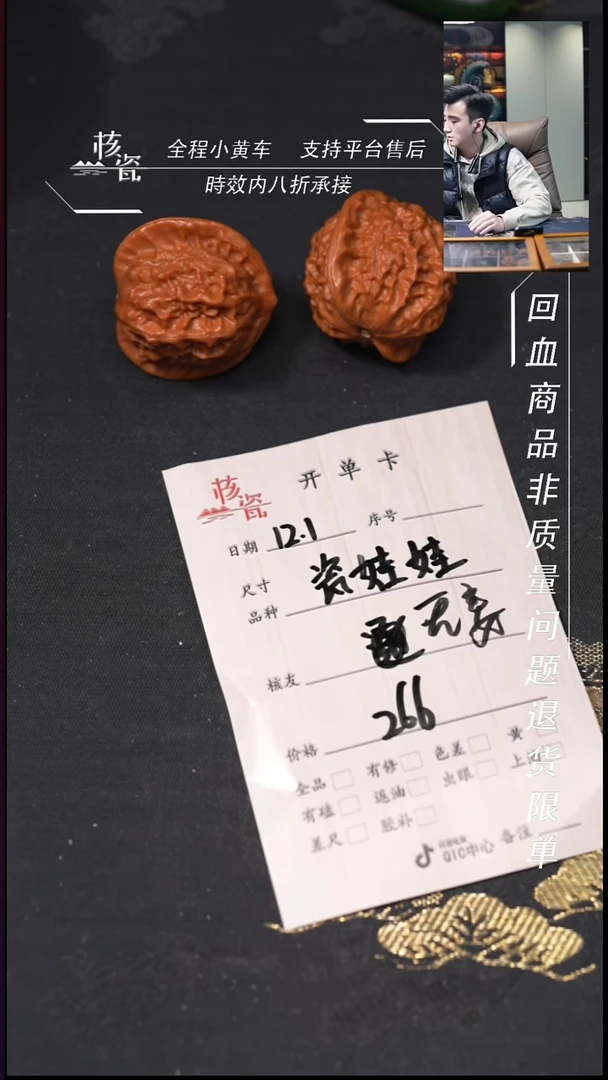 核瓷
全程小黄车 支持平台售后
時效内八折承接
回血商品非质量问题退货限单
核瓷
开单卡
日期 12.1 序号
尺寸
品种 瓷娃娃
无豪
核友
价格 266
全品 有修 色差 黄
有磕 返油 虫眼 上
差尺 胶补
QIC中心 备注